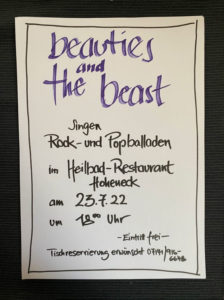 beauties
and
the beast
Singen
Rock- und Popballaden
im Heilbad-Restaurant
Hoheneck
am 23.7.22
um 18⁰⁰ Uhr
- Eintritt frei -
Tischreservierung erwünscht